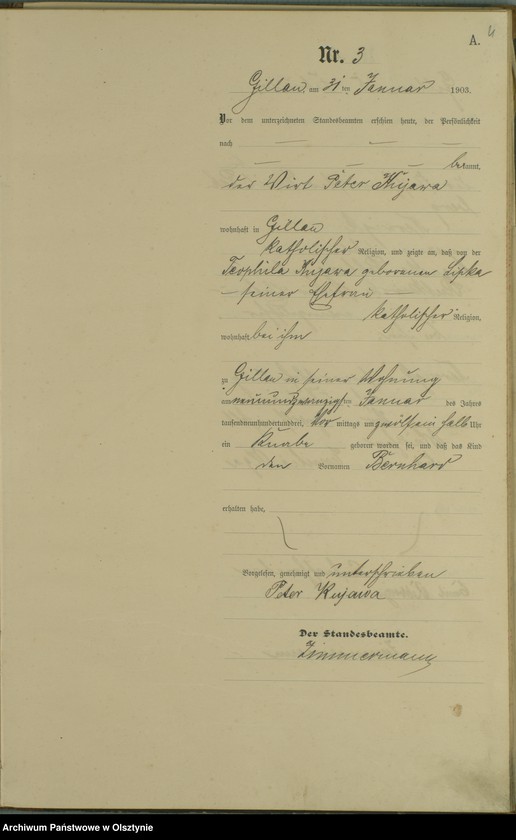 4
A.
Nr. 3
Gillau, am 31 ten Januar 1903.
Vor dem unterzeichneten Standesbeamten erschien heute, der Persönlichkeit
nach — — —
— — — bekannt,
der Wirt Peter Kujawa
wohnhaft in Gillau
katholischer Religion, und zeigte an, daß von der
Teophila Kujawa geborenen Lipka
— seiner Ehefrau —
katholischer Religion,
wohnhaft bei ihm
zu Gillau in seiner Wohnung
am neunundzwanzigsten Januar des Jahres
tausendneunhundertunddrei, Vor mittags um zwölf ein halb Uhr
ein Knabe geboren worden sei, und daß das Kind
den Vornamen Bernhard
erhalten habe.
Vorgelesen, genehmigt und unterschrieben
Peter Kujawa
Der Standesbeamte.
Zimmermann
Archiwum Państwowe w Olsztynie